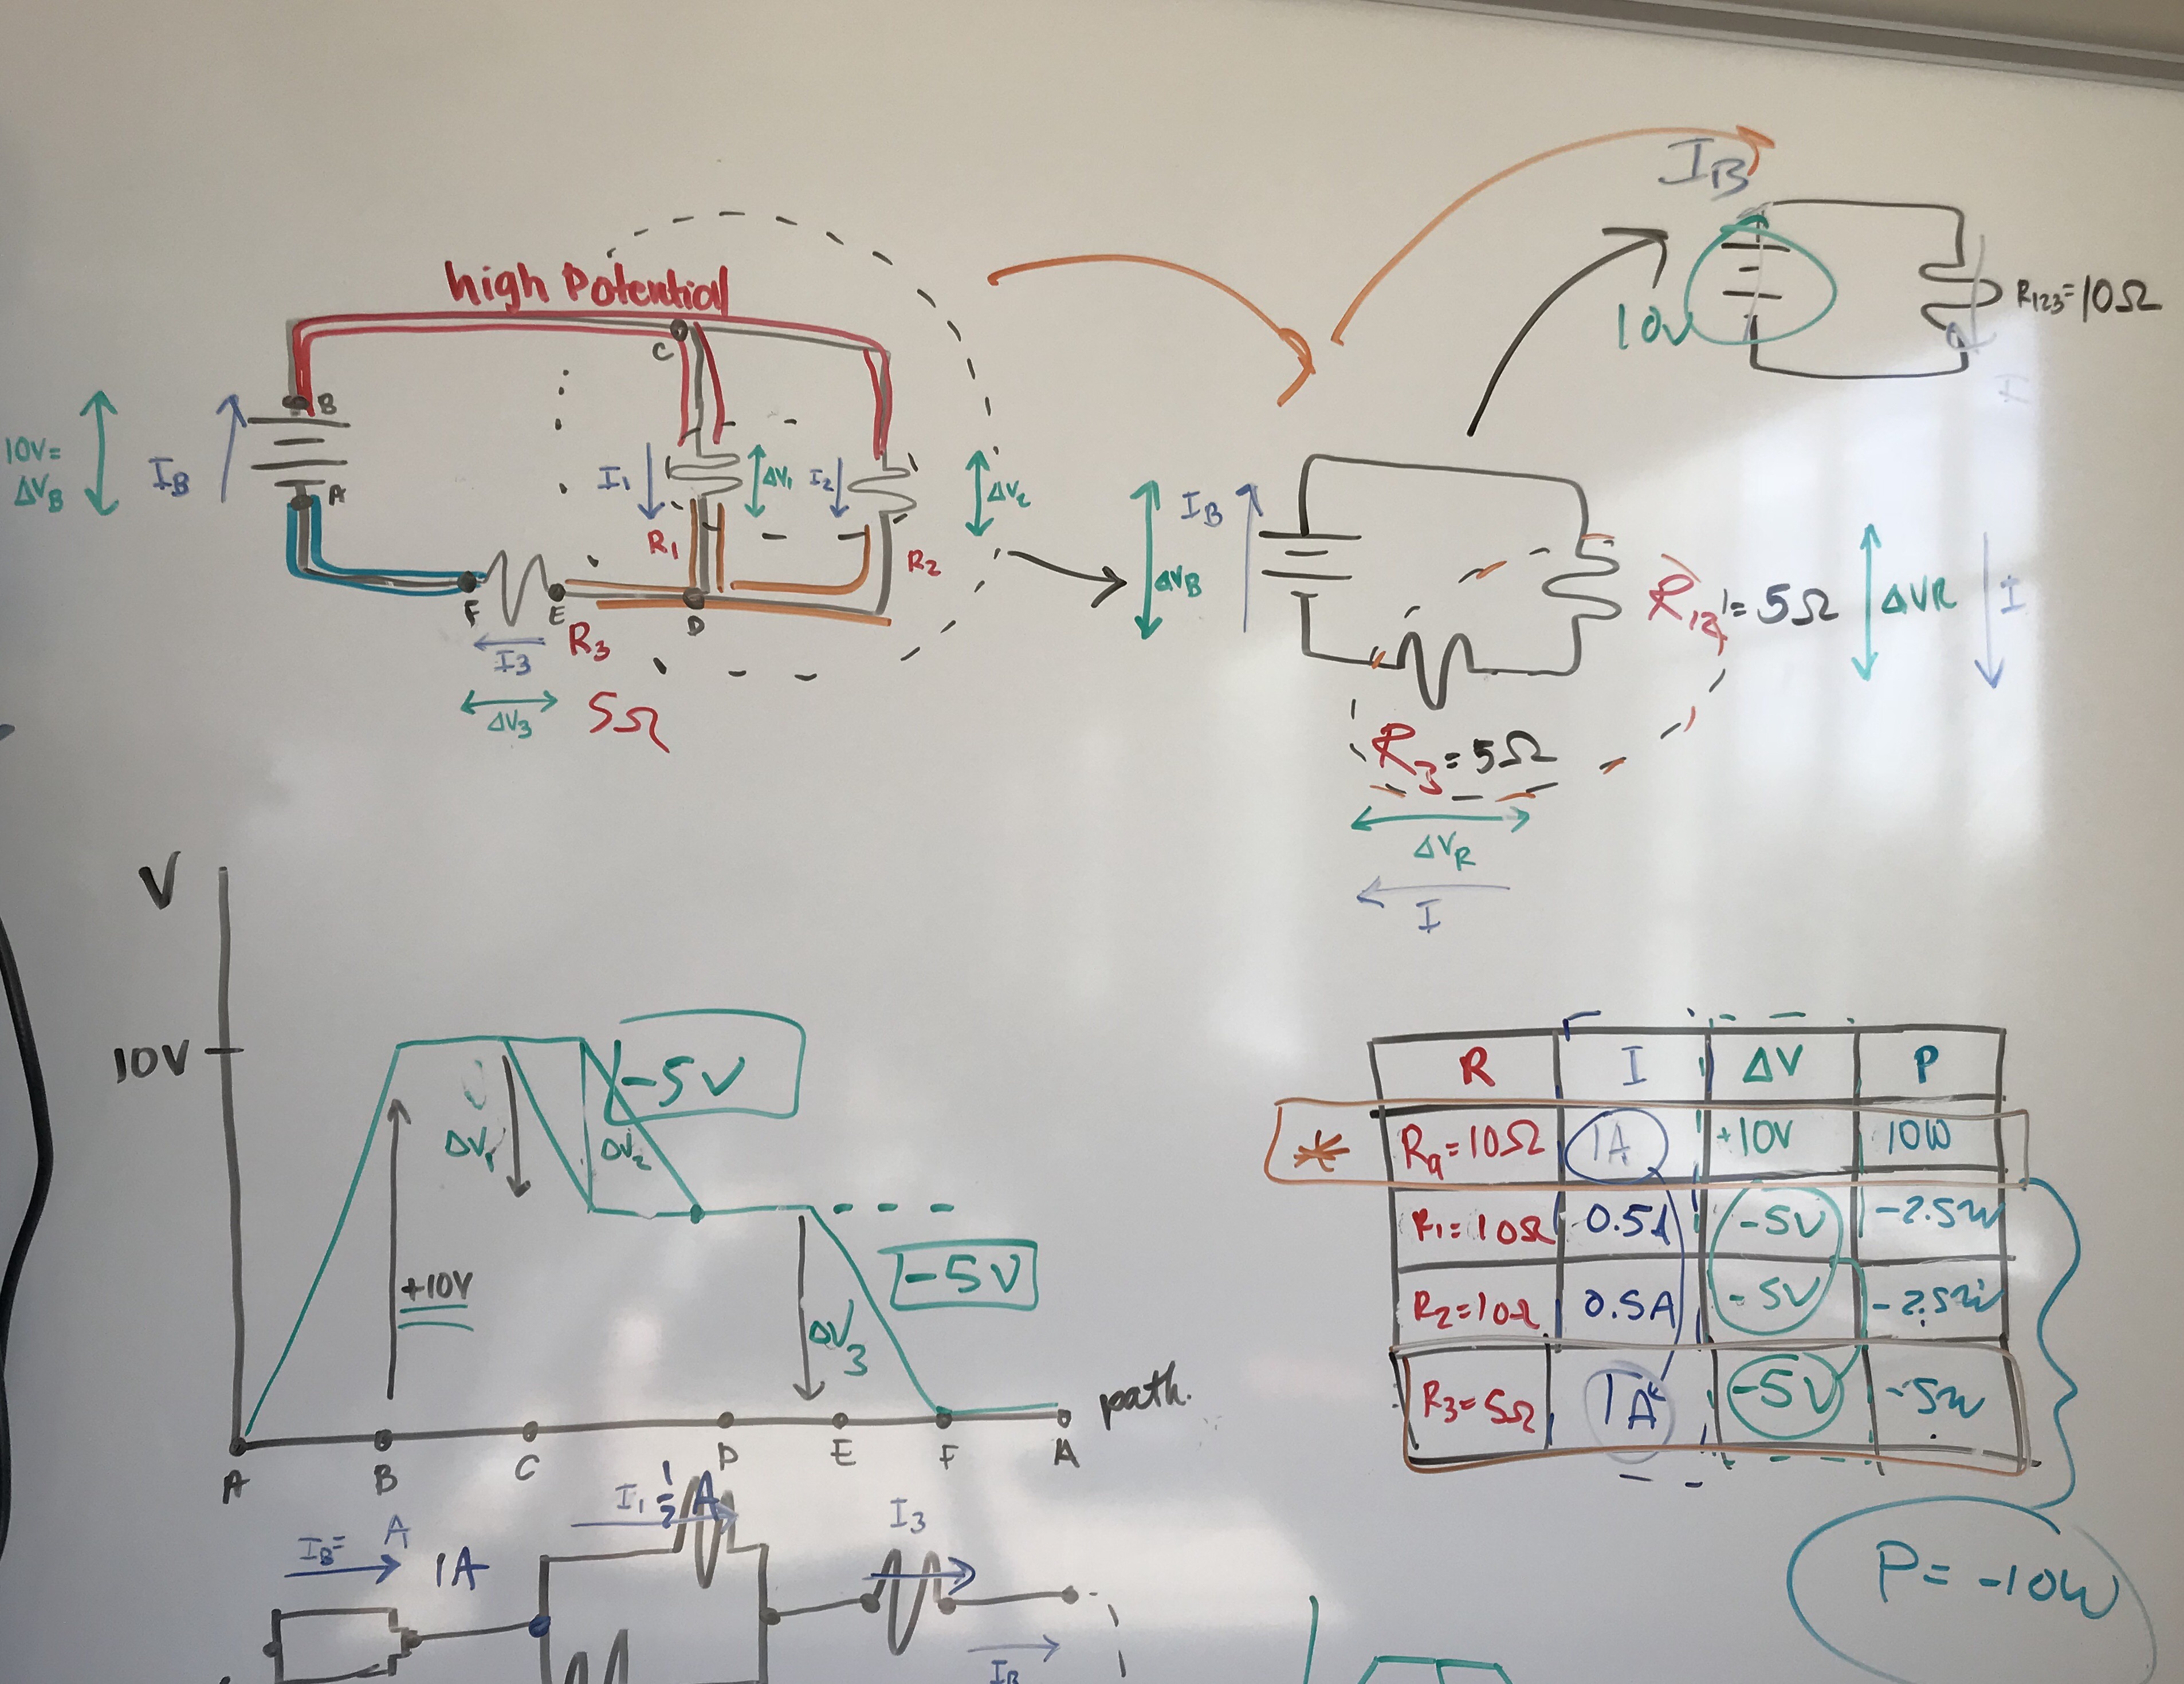 high Potential
C
B
10V=
ΔV_B
I_B
A
I_1
ΔV_1
I_2
ΔV_2
R_1
R_2
F
E
D
R_3
I_3
ΔV_3
5Ω
I_B
10V
R_123=10Ω
I
I_B
ΔV_B
R_12=5Ω
ΔVR
I
R_3=5Ω
ΔV_R
I
V
10V
-5V
ΔV_1
ΔV_2
+10V
-5V
ΔV_3
path.
A
B
C
D
E
F
A
R I ΔV P
* R_q=10Ω 1A +10V 10W
R_1=10Ω 0.5A -5V -2.5W
R_2=10Ω 0.5A -5V -2.5W
R_3=5Ω 1A -5V -5W
P=-10W
I_B=
A
1A
I_1
1/2 A
I_3
I_B